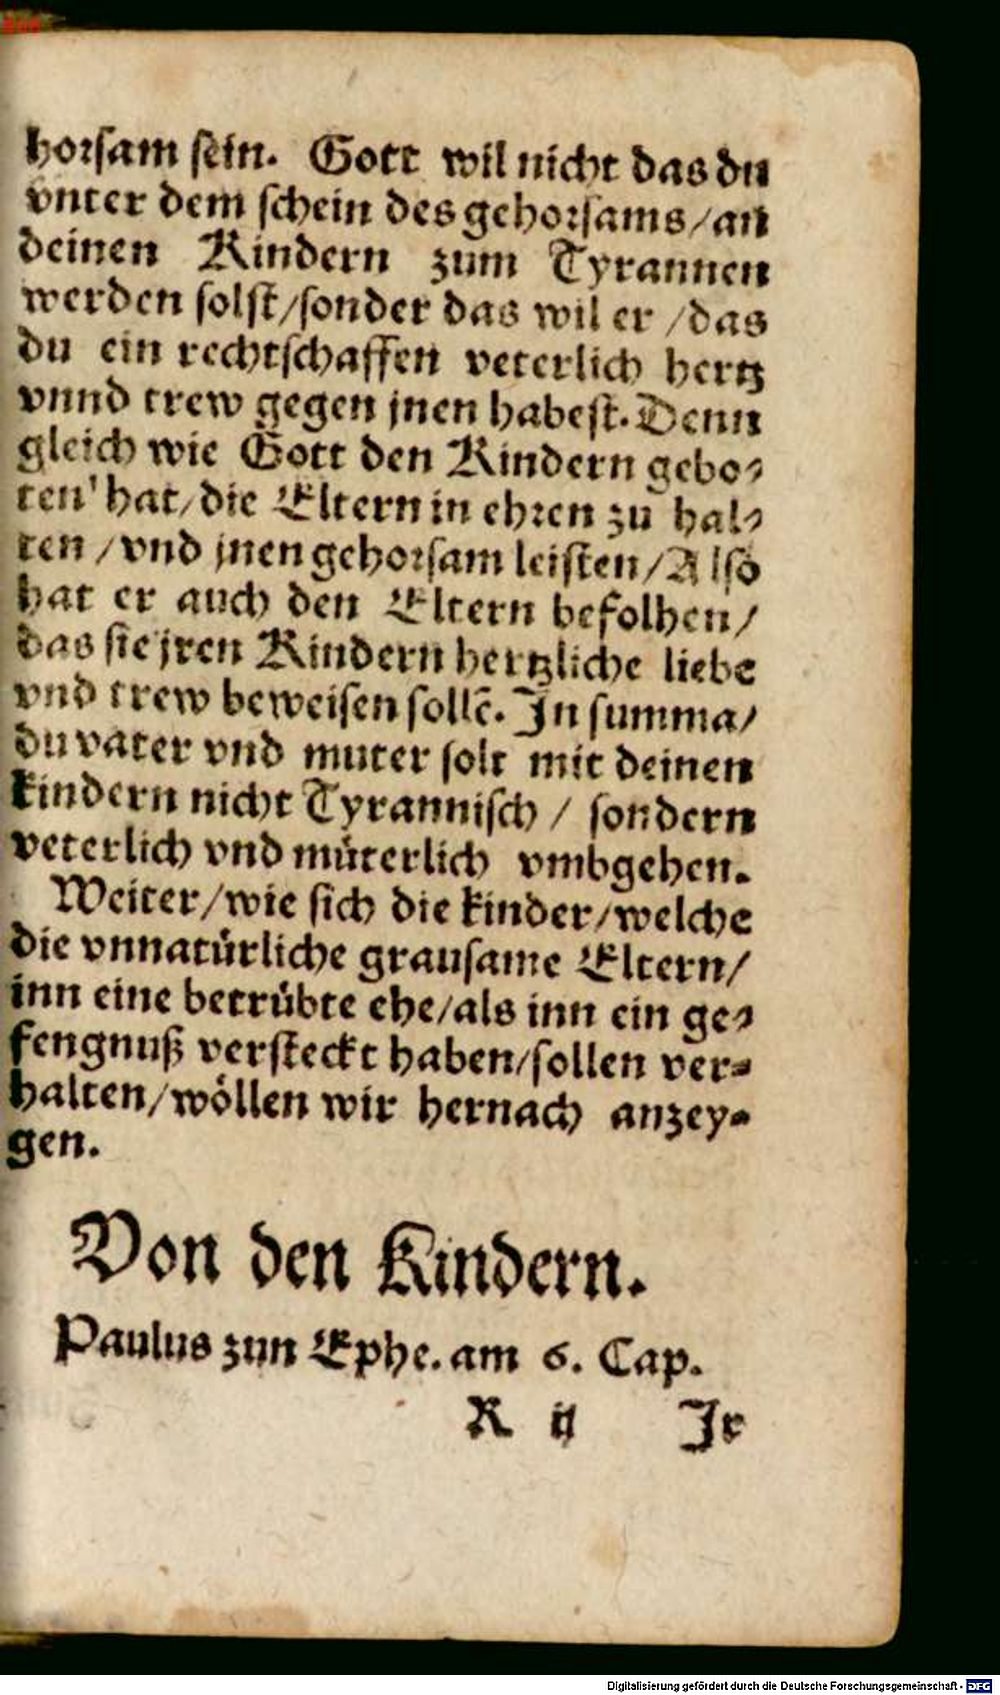 horsam sein. Gott wil nicht das du
vnter dem schein des gehorsams/an
deinen Kindern zum Tyrannen
werden solst/sonder das wil er /das
du ein rechtschaffen veterlich hertz
vnnd trew gegen jnen habest. Denn
gleich wie Gott den Kindern gebo⸗
ten hat/die Eltern in ehren zu hal⸗
ten /vnd jnen gehorsam leisten/Also
hat er auch den Eltern befolhen/
das sie jren Kindern hertzliche liebe
vnd trew beweisen sollē. In summa/
du vater vnd muter solt mit deinen
kindern nicht Tyrannisch / sondern
veterlich vnd müterlich vmbgehen.
Weiter/wie sich die kinder/welche
die vnnatürliche grausame Eltern/
inn eine betrübte ehe/als inn ein ge⸗
fengnuß versteckt haben/sollen ver⸗
halten/wöllen wir hernach anzey⸗
gen.
Von den Kindern.
Paulus zun Ephe. am 6. Cap.
K ij Jr
Digitalisierung gefördert durch die Deutsche Forschungsgemeinschaft - DFG